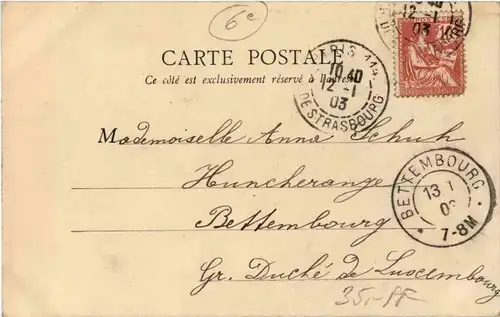 6e
CARTE POSTALE
Ce côté est exclusivement réservé à l'adresse
PARIS
10 40
12 -1
03
DE STRASBOURG
12 -1
03
POSTES
10
Mademoiselle Anna Schuh
Huncherange
BETTEMBOURG
13 1
03
7-8M
Bettembourg
Gr. Duché de Luxembourg
35.- FF